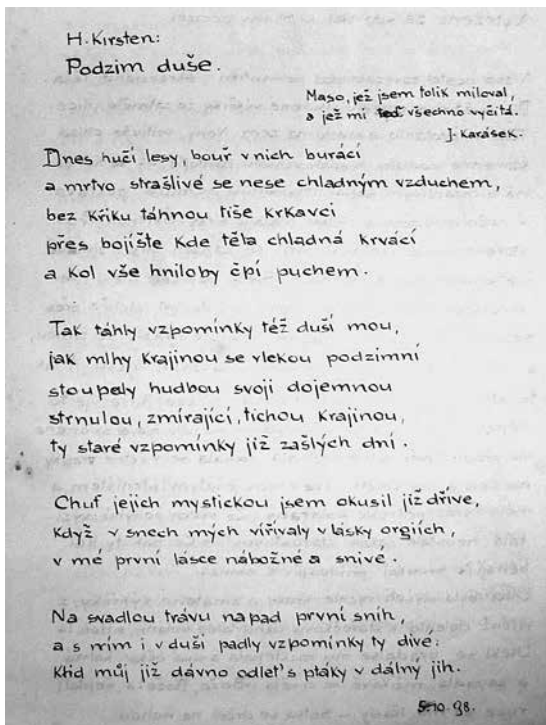 H. Kirsten:
Podzim duše.
Maso, jež jsem tolik miloval,
a jež mi všechno vyčítá.
J. Karásek.
Dnes hučí lesy, bouř v nich burácí
a mrtvo strašlivé se nese chladným vzduchem,
bez křiku táhnou tiše krkavci
přes bojište kde těla chladná krvácí
a kol vše hniloby čpí puchem.
Tak táhly vzpomínky též duší mou,
jak mlhy krajinou se vlekou podzimní
stoupaly hudbou svojí dojemnou
strnulou, zmírající, tichou krajinou,
ty staré vzpomínky již zašlých dní.
Chuť jejich mystickou jsem okusil již dříve,
když v snech mých vířívaly v lásky orgiích,
v mé první lásce nábožné a snivé.
Na svadlou trávu napad první sníh,
a s mím i v duši padly vzpomínky ty divé:
Klid můj již dávno odleť s ptáky v dálný jih.
5.10.98.